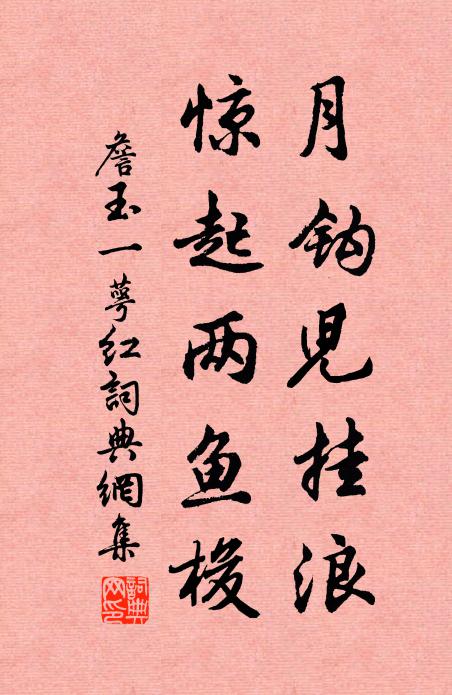 月钩儿挂浪
惊起两鱼梭
詹玉一萼红詞典網集
詞典网印